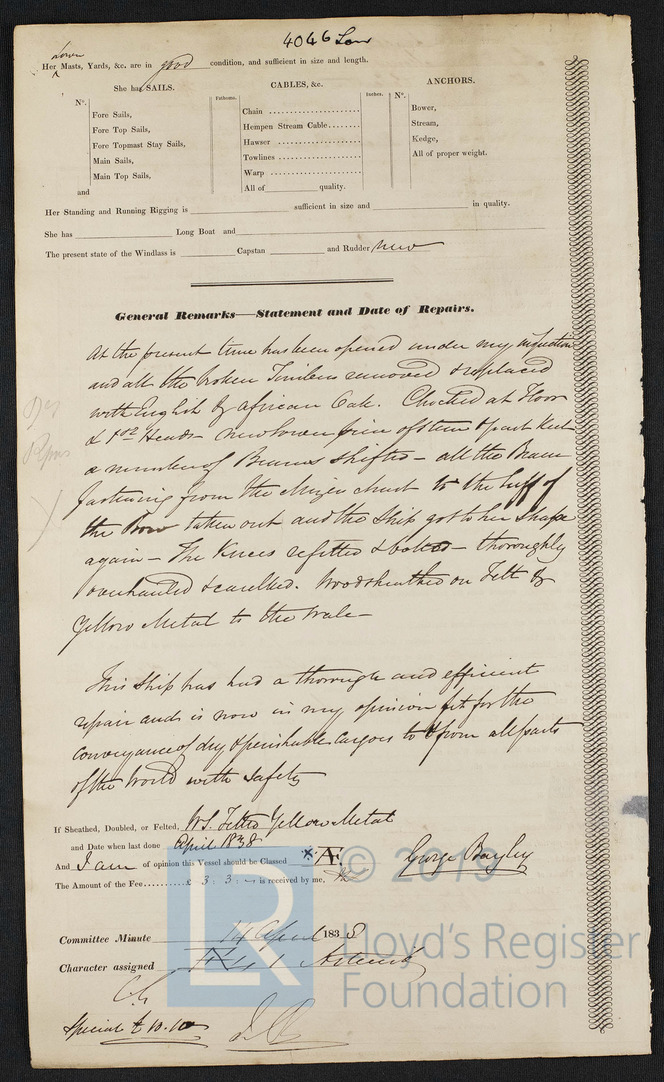 4046 Lon
Lower
Her Masts, Yards, &c. are in good condition, and sufficient in size and length.
She has SAILS.
CABLES, &c.
ANCHORS.
No.
Fathoms.
Inches.
No.
Fore Sails,
Fore Top Sails,
Fore Topmast Stay Sails,
Main Sails,
Main Top Sails,
and
Chain
Hempen Stream Cable
Hawser
Towlines
Warp
All of quality.
Bower,
Stream,
Kedge,
All of proper weight.
Her Standing and Running Rigging is sufficient in size and in quality.
She has Long Boat and
The present state of the Windlass is Capstan and Rudder new
General Remarks—Statement and Date of Repairs.
At the present time has been opened under my inspection
and all the broken Timbers removed & replaced
with English & African Oak. Chocked at Floor
& Heads - new lower piece of stem & part Keel
a number of Beams shifted - all the Beam
fastening from the Mizen Mast to the luff of
the Bow taken out and the Ship got to her Shape
again - The Knees refitted & bolted - thoroughly
overhauled & caulked. Woodsheathed on Felt &
Yellow Metal to the Wale -
This Ship has had a thorough and efficient
repair and is now in my opinion fit for the
conveyance of dry & perishable cargoes to & from all parts
of the World with safety
If Sheathed, Doubled, or Felted, W.S. Felted Yellow Metal
and Date when last done April 1838
And I am of opinion this Vessel should be Classed *Æ.
George Bayley
The Amount of the Fee £ 3 : 3 : — is received by me,
Committee Minute 14 April 1838
Character assigned
Special £ 10.10
© 2019
LR
Lloyd's Register
Foundation